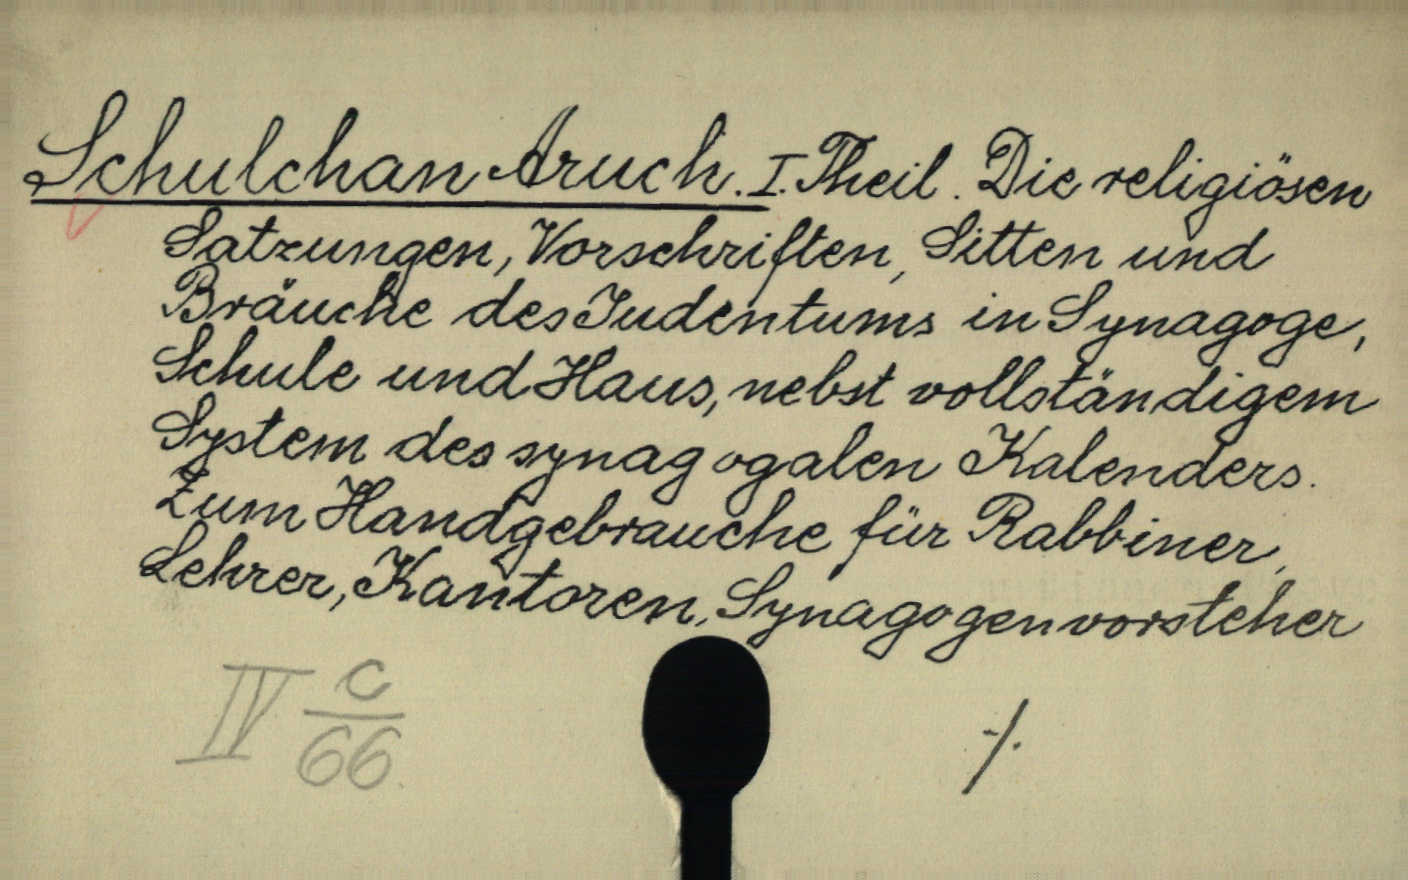 Schulchan Aruch. I. Theil. Die religiösen
Satzungen, Vorschriften, Sitten und
Bräuche des Judentums in Synagoge,
Schule und Haus, nebst vollständigem
System des synagogalen Kalenders.
Zum Handgebrauche für Rabbiner,
Lehrer, Kantoren, Synagogenvorsteher
IV c/66
./.